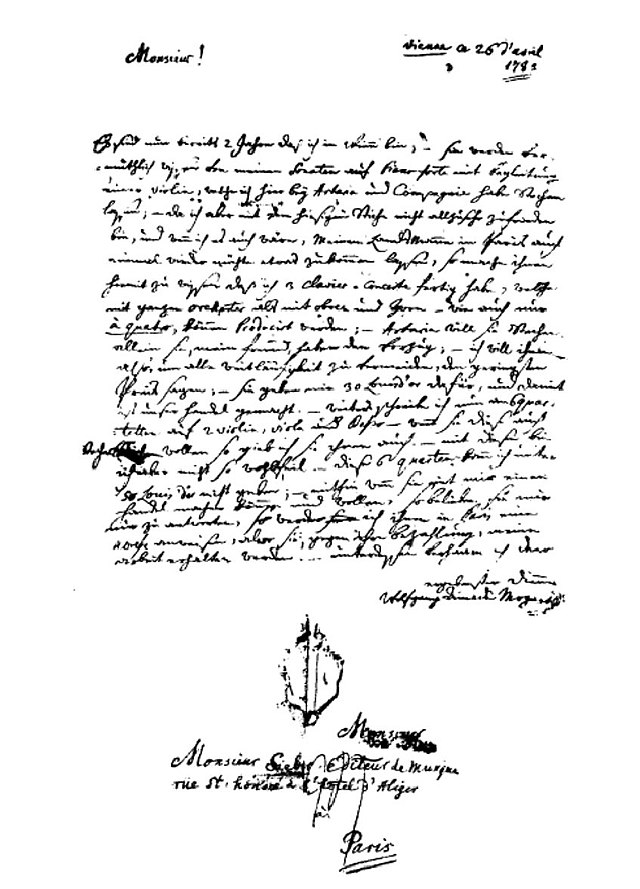 Monsieur!
Vienne ce 26 d'avril
1783
Es sind nun bereits 2 Jahre daß ich in Wienn bin; – sie werden ver-
muthlich wissen von meinen Sonaten auf Piano forte mit begleitung
einer violin, welche ich hier bey Artaria und Compagnie habe stechen
lassen; – da ich aber mit dem hiesigen Stiche nicht zufrieden
bin, und wenn ich es auch wäre, meinen Landsmann in Paris auch
einmal wieder möchte etwas zukommen lassen, so mache ihnen
hiemit zu wissen daß ich 3 Clavier-Concerte fertig habe, welche
mit ganzen orchester als mit oboen und Horn – wie auch nur
à quatro, können Producirt werden; – Artaria will sie stechen.
allein sie, mein freund, haben den vorzug; – ich will ihnen
also, um alle weitläufigkeit zu vermeiden, den geringsten
Preis sagen; – sie geben mir 30 Louis d'or dafür, und damit
ist unser handel gemacht. – schreibe ich nun an 6 quar-
tetten auf 2 violin, viola und Basso – wenn sie diese auch
stechen wollen so gieb ich sie ihnen auch. – mit diese bin
ich aber nicht so wohlfeil – diese 6 quartetten kan ich unter
50 Louis d'or nicht geben; – mithin wenn sie mit mir einen
handel machen können und wollen, so belieben sie mir
nur zu antworten, so werde ich ihnen in Paris eine
anweisen, sie, gegen bezahlung, meine
arbeit erhalten werden. – unterdessen verharre ich dero
ergebenster diener
Wolfgang Amadè Mozart
Monsieur
Monsieur Sieber Editeur de Musique
rue St: honoré à l'hotel d'Aligre
à
Paris